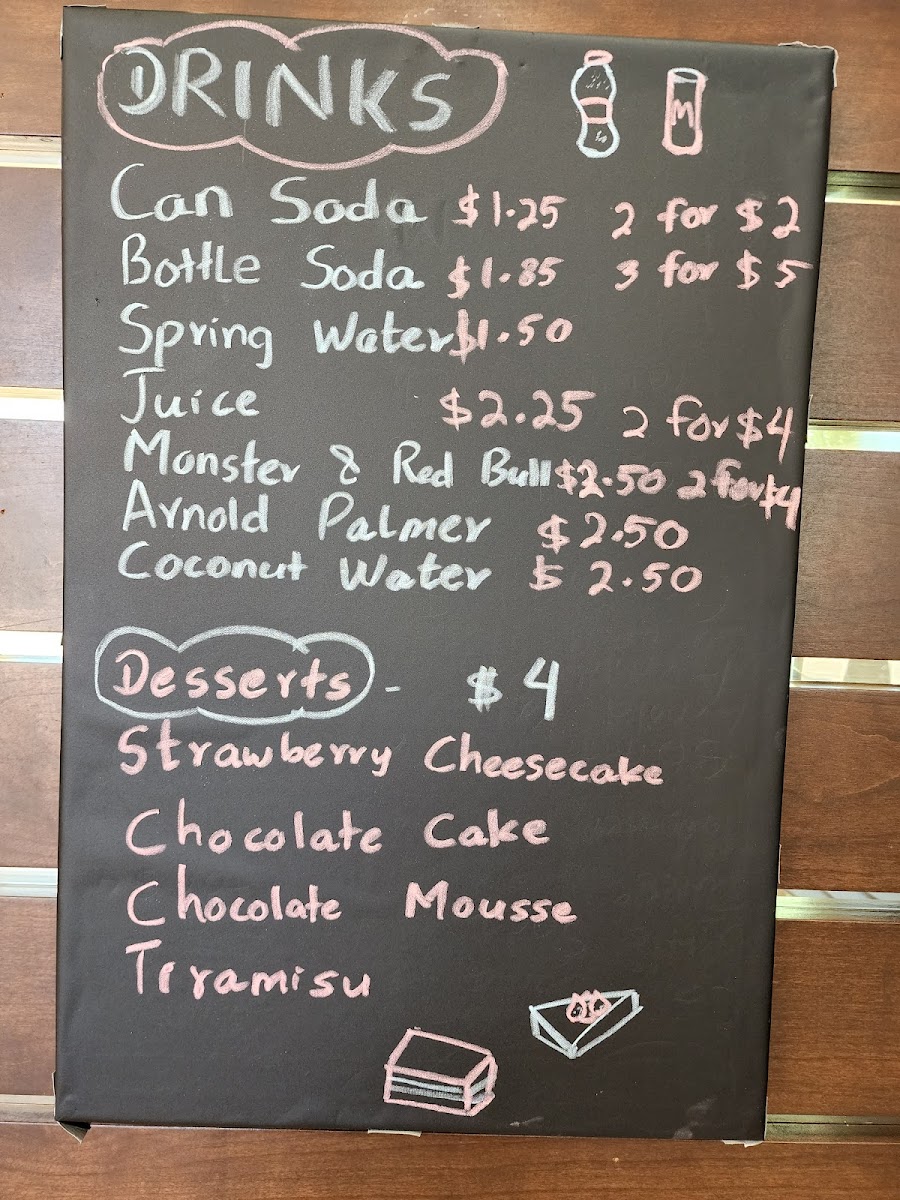 DRINKS
Can Soda $1.25 2 for $2
Bottle Soda $1.85 3 for $5
Spring Water $1.50
Juice $2.25 2 for $4
Monster & Red Bull $2.50 2 for $4
Arnold Palmer $2.50
Coconut Water $2.50
Desserts - $4
Strawberry Cheesecake
Chocolate Cake
Chocolate Mousse
Tiramisu